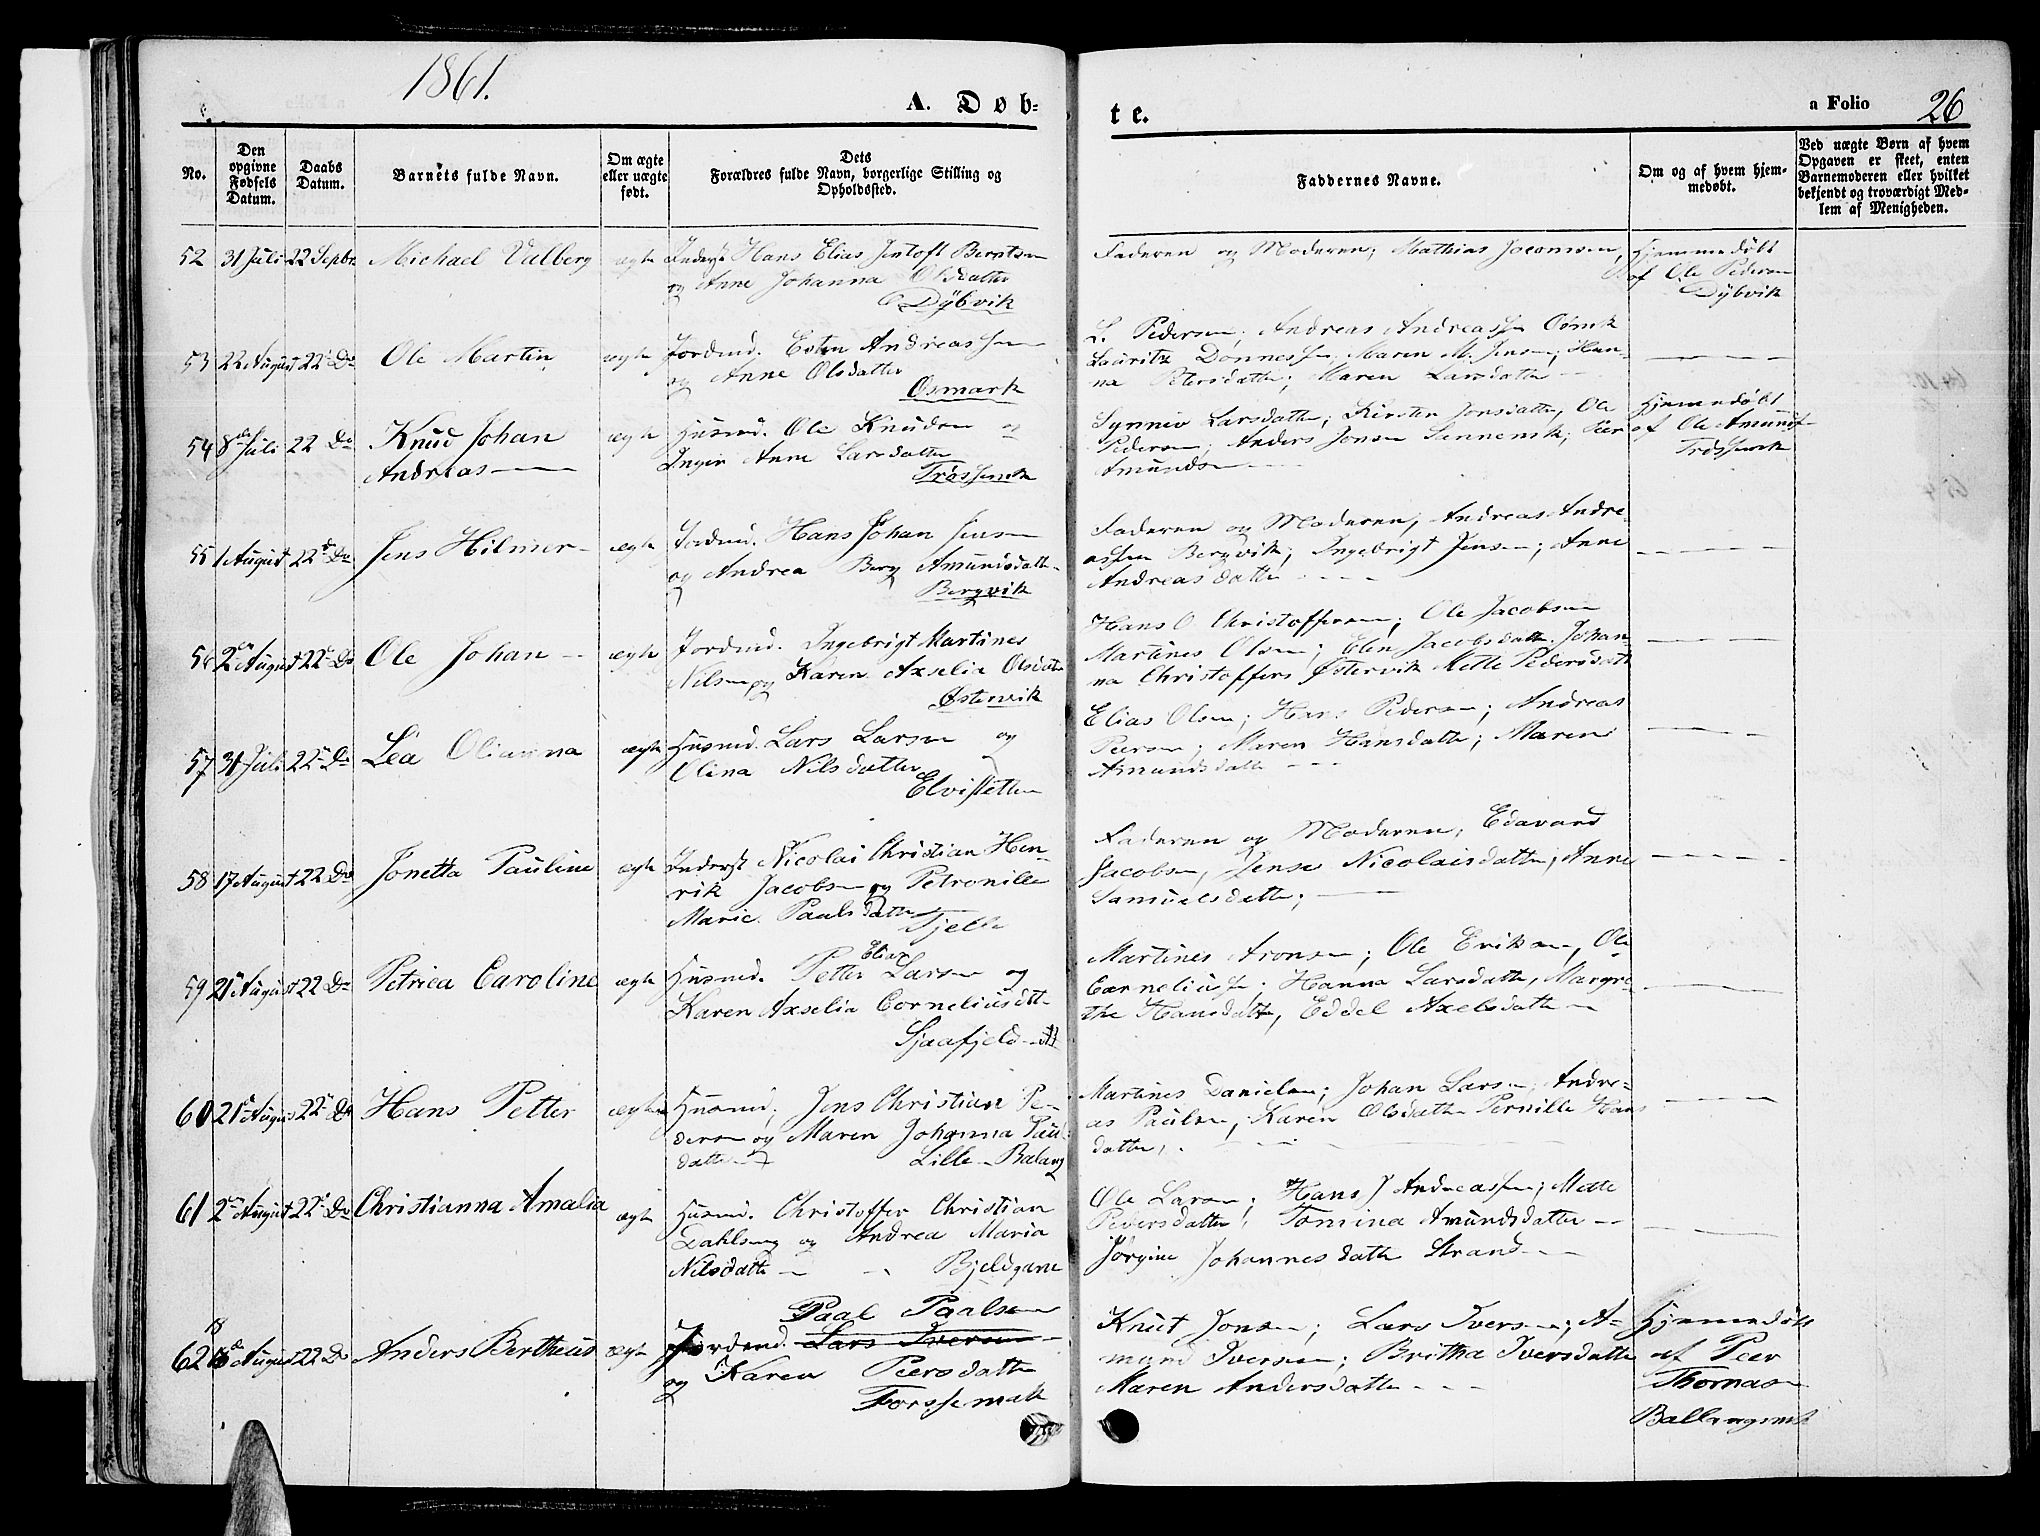 1861.
A. Døb-
te.
a Folio 26
No.
Den opgivne Fødsels Datum.
Daabs Datum.
Barnets fulde Navn.
Om ægte eller uægte født.
Dets Forældres fulde Navn, borgerlige Stilling og Opholdssted.
Faddernes Navne.
Om og af hvem hjemmedøbt.
Ved uægte Børn af hvem Opgaven er skeet, enten Barnemoderen eller hvilket bekjendt og troværdigt Medlem af Menigheden.
52 31 Juli 22 Septbr Michael Valberg ægte Inderst Hans Elias Jentoft Berntsen
og Anne Johanna Olsdatter
Dÿbvik
Faderen og Moderen; Mathias
Hjemmedøbt
af Ole Pedersen
Dÿbvik
53 22 August 22 Do Ole Martin ægte Jordmd. Andreassen
og Anne Olsdatter
Osmark
L. Pedersen; Andreas Andreassen
Lauritz Dønnessen; Maren M. Jensen; Han-
na Petersdatter; Maren Larsdatter
54 8de Juli 22 Do Knud Johan
Andreas
ægte Husmd. Ole Knudsen og
Inger Anne Larsdatter
Synnev Larsdatter; Kirsten Jonsdatter, Ole
Pedersen; Anders Jonsen; Peer
Amundsen
Hjemmedøbt
af Ole
55 1 August 22 Do Jens Hilmer ægte Jordmd. Hans Johan Jensen
og Andrea Berg Amundsdatter
Bergvik
Faderen og Moderen, Andreas Andre-
assen Bergvik; Ingebrigt Jensen; Anne
Andreasdatter
56 2den August 22 Do Ole Johan ægte Jordmd. Ingebrigt Martines
Nilsen og Karen Axselia Olsdatter
Østervik
Hans O Christoffersen; Ole Jacobsen
Martines Olsen; Elen Jacobsdatter. Johan-
na Christoffers Østervik Mette Pedersdatter
57 31 Juli 22 Do Lea Olianna ægte Husmd. Lars Larsen og
Olina Nilsdatter
Elvisletten
Elias Olsen; Hans Pedersen; Andreas
Peersen; Maren Hansdatter; Maren
Amundsdatter
58 17 August 22 Do Jonetta Pauline ægte Inderst Nicolai Christian Hen-
rik Jacobsen og Petronille
Marie Paalsdatter
Faderen og Moderen, Edavard
Jacobsen, Jense Nicolaisdatter, Anne
Samuelsdatter;
59 21 August 22 Do Petrica Caroline ægte Husmd. Petter Elias Larsen og
Karen Axselia Corneliusdtt
Sjaafjeld
Martines Aronsen; Ole Eriksen, Ole
Corneliussen; Hanna Larsdatter, Margre-
the Hansdatter, Eddel Axelsdatter
60 21 August 22 Do Hans Petter ægte Husmd. Jens Christian Pe-
dersen og Maren Johanna Paul
datter Lille Balang
Martines Danielsen; Johan Larsen, Andre-
as Paulsen, Karen Olsdatter Pernille Hans
datter,
61 2den August 22 Do Christianna Amalia ægte Husmd. Christoffer Christian
Dahlseng og Andrea Maria
Nilsdatter Bjeldgam
Ole Larsen; Hans J Andreassen; Mette
Pedersdatter; Tomina Amundsdatter
Jørgine Johannesdatter Strand
62 18 August 22 Do Anders Bertheus ægte Paal Paalsen
Jordmd. Lars Iversen
og Karen Peersdatter
Forssemark
Knut Jonsen; Lars Iversen; A-
mund Iversen; Britha Iversdatter
Maren Andersdatter
Hjemmedøbt
af Peer
Thomasen
Ballangsmk